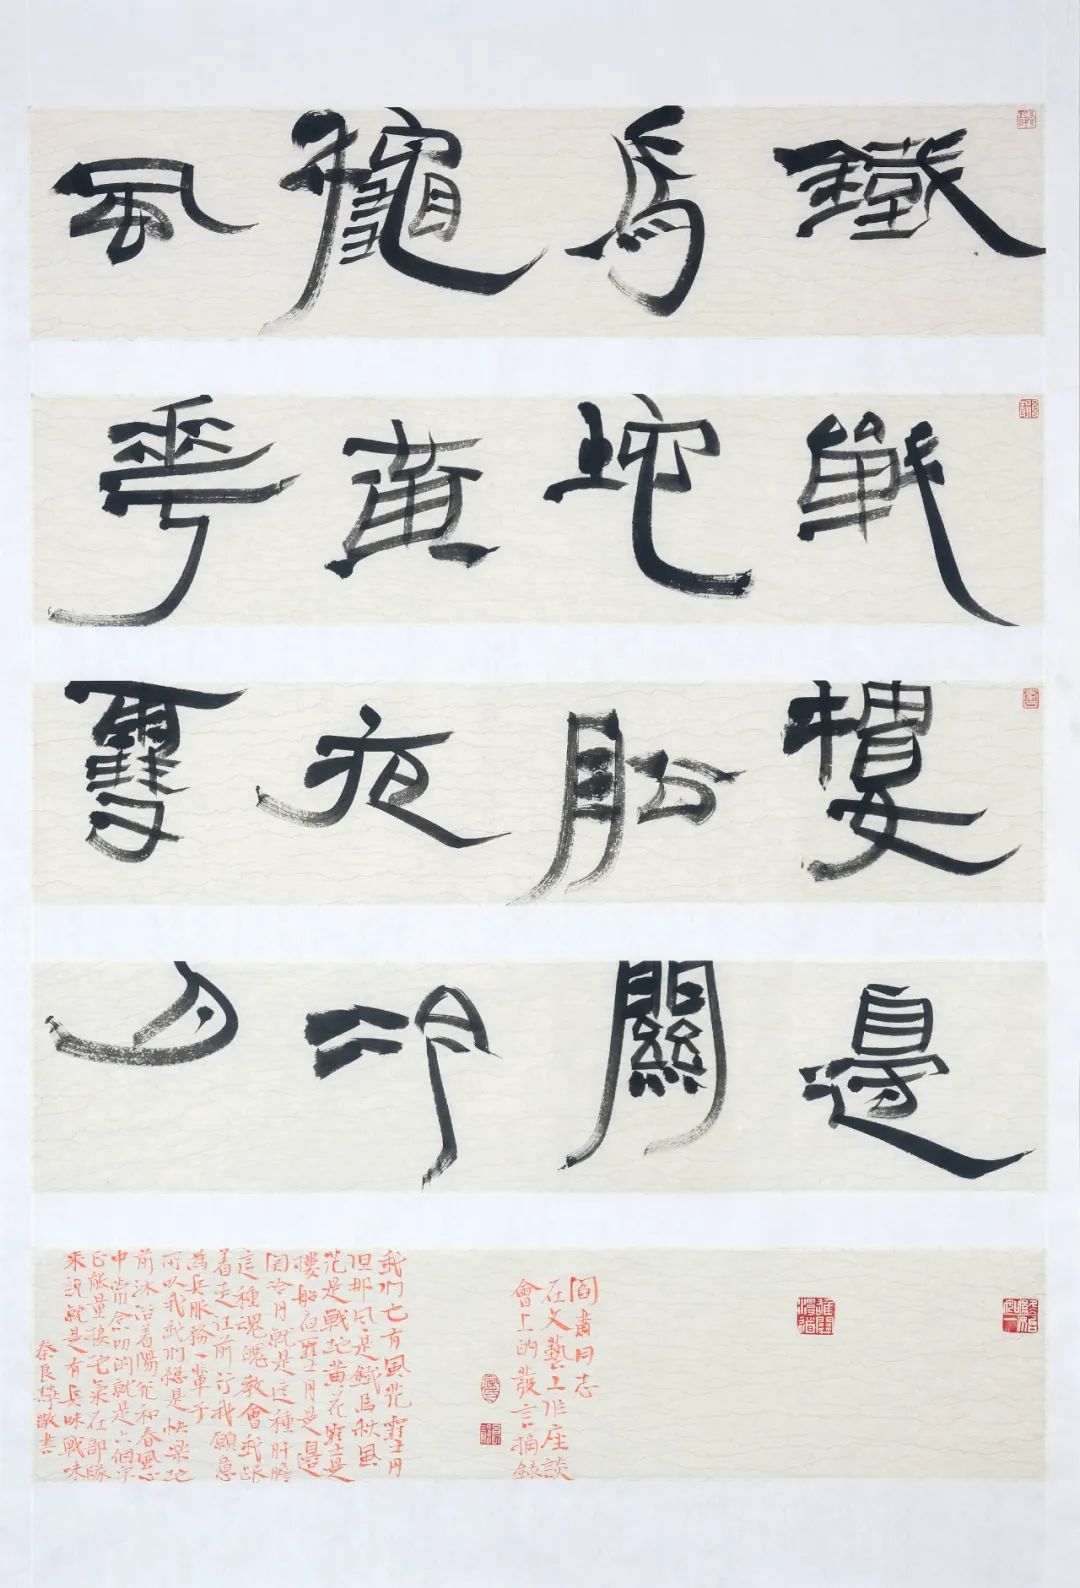 鐵馬穐風
戰地黃花
樓船夜雪
邊關冷月
閻肅同志
在文藝工作座談
會上的發言摘錄
我們也有風花雪月
但那風是鐵馬秋風
花是戰地黃花雪是
樓船夜雪月是邊
關冷月就是這種肝膽
這種魂魄教會我跟
着走往前行我願意
為兵服務一輩子
所以我我們總是快樂地
前沐浴着陽光和春風心
中常念叨的就是六個字
正能量接地氣在部隊
來說就是有兵味戰味
秦良敬書